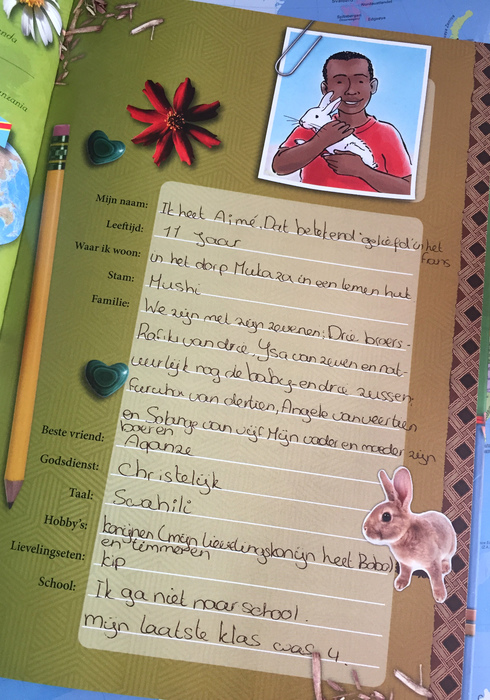 Mijn naam: Ik heet Aimé. Dat betekend 'geliefd' in het Frans
Leeftijd: 11 jaar
Waar ik woon: in het dorp Mukaza in een lemen hut
Stam: Hushi
Familie: We zijn met zijn zevenen; Drie broers-
Rafiki van drie, Ysa van zeven en nat-
uurlijk nog de baby-en drie zussen:
Furaha van dertien, Angele van veertien
en Solange van vijf. Mijn vader en moeder zijn
boeren
Beste vriend: Aganze
Godsdienst: Christelijk
Taal: Swahili
Hobby's: konijnen (mijn lievelingskonijn heet Bobo)
en timmeren
Lievelingseten: kip
School: Ik ga niet naar school.
mijn laatste klas was 4.
anzania